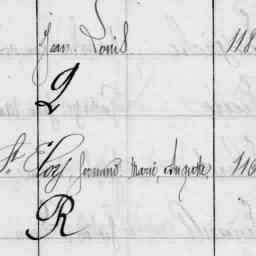 Jean Louis 118
Q
St. Eloy Fernand, Marie, 116
R